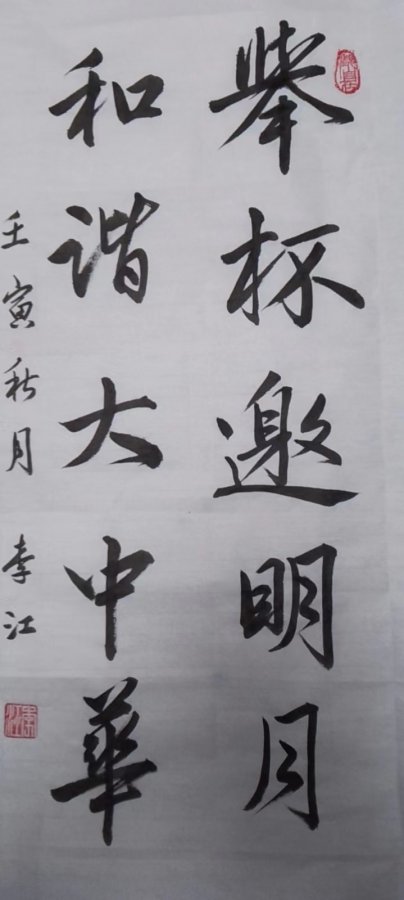 舉杯邀明月
和谐大中華
壬寅秋月 李江